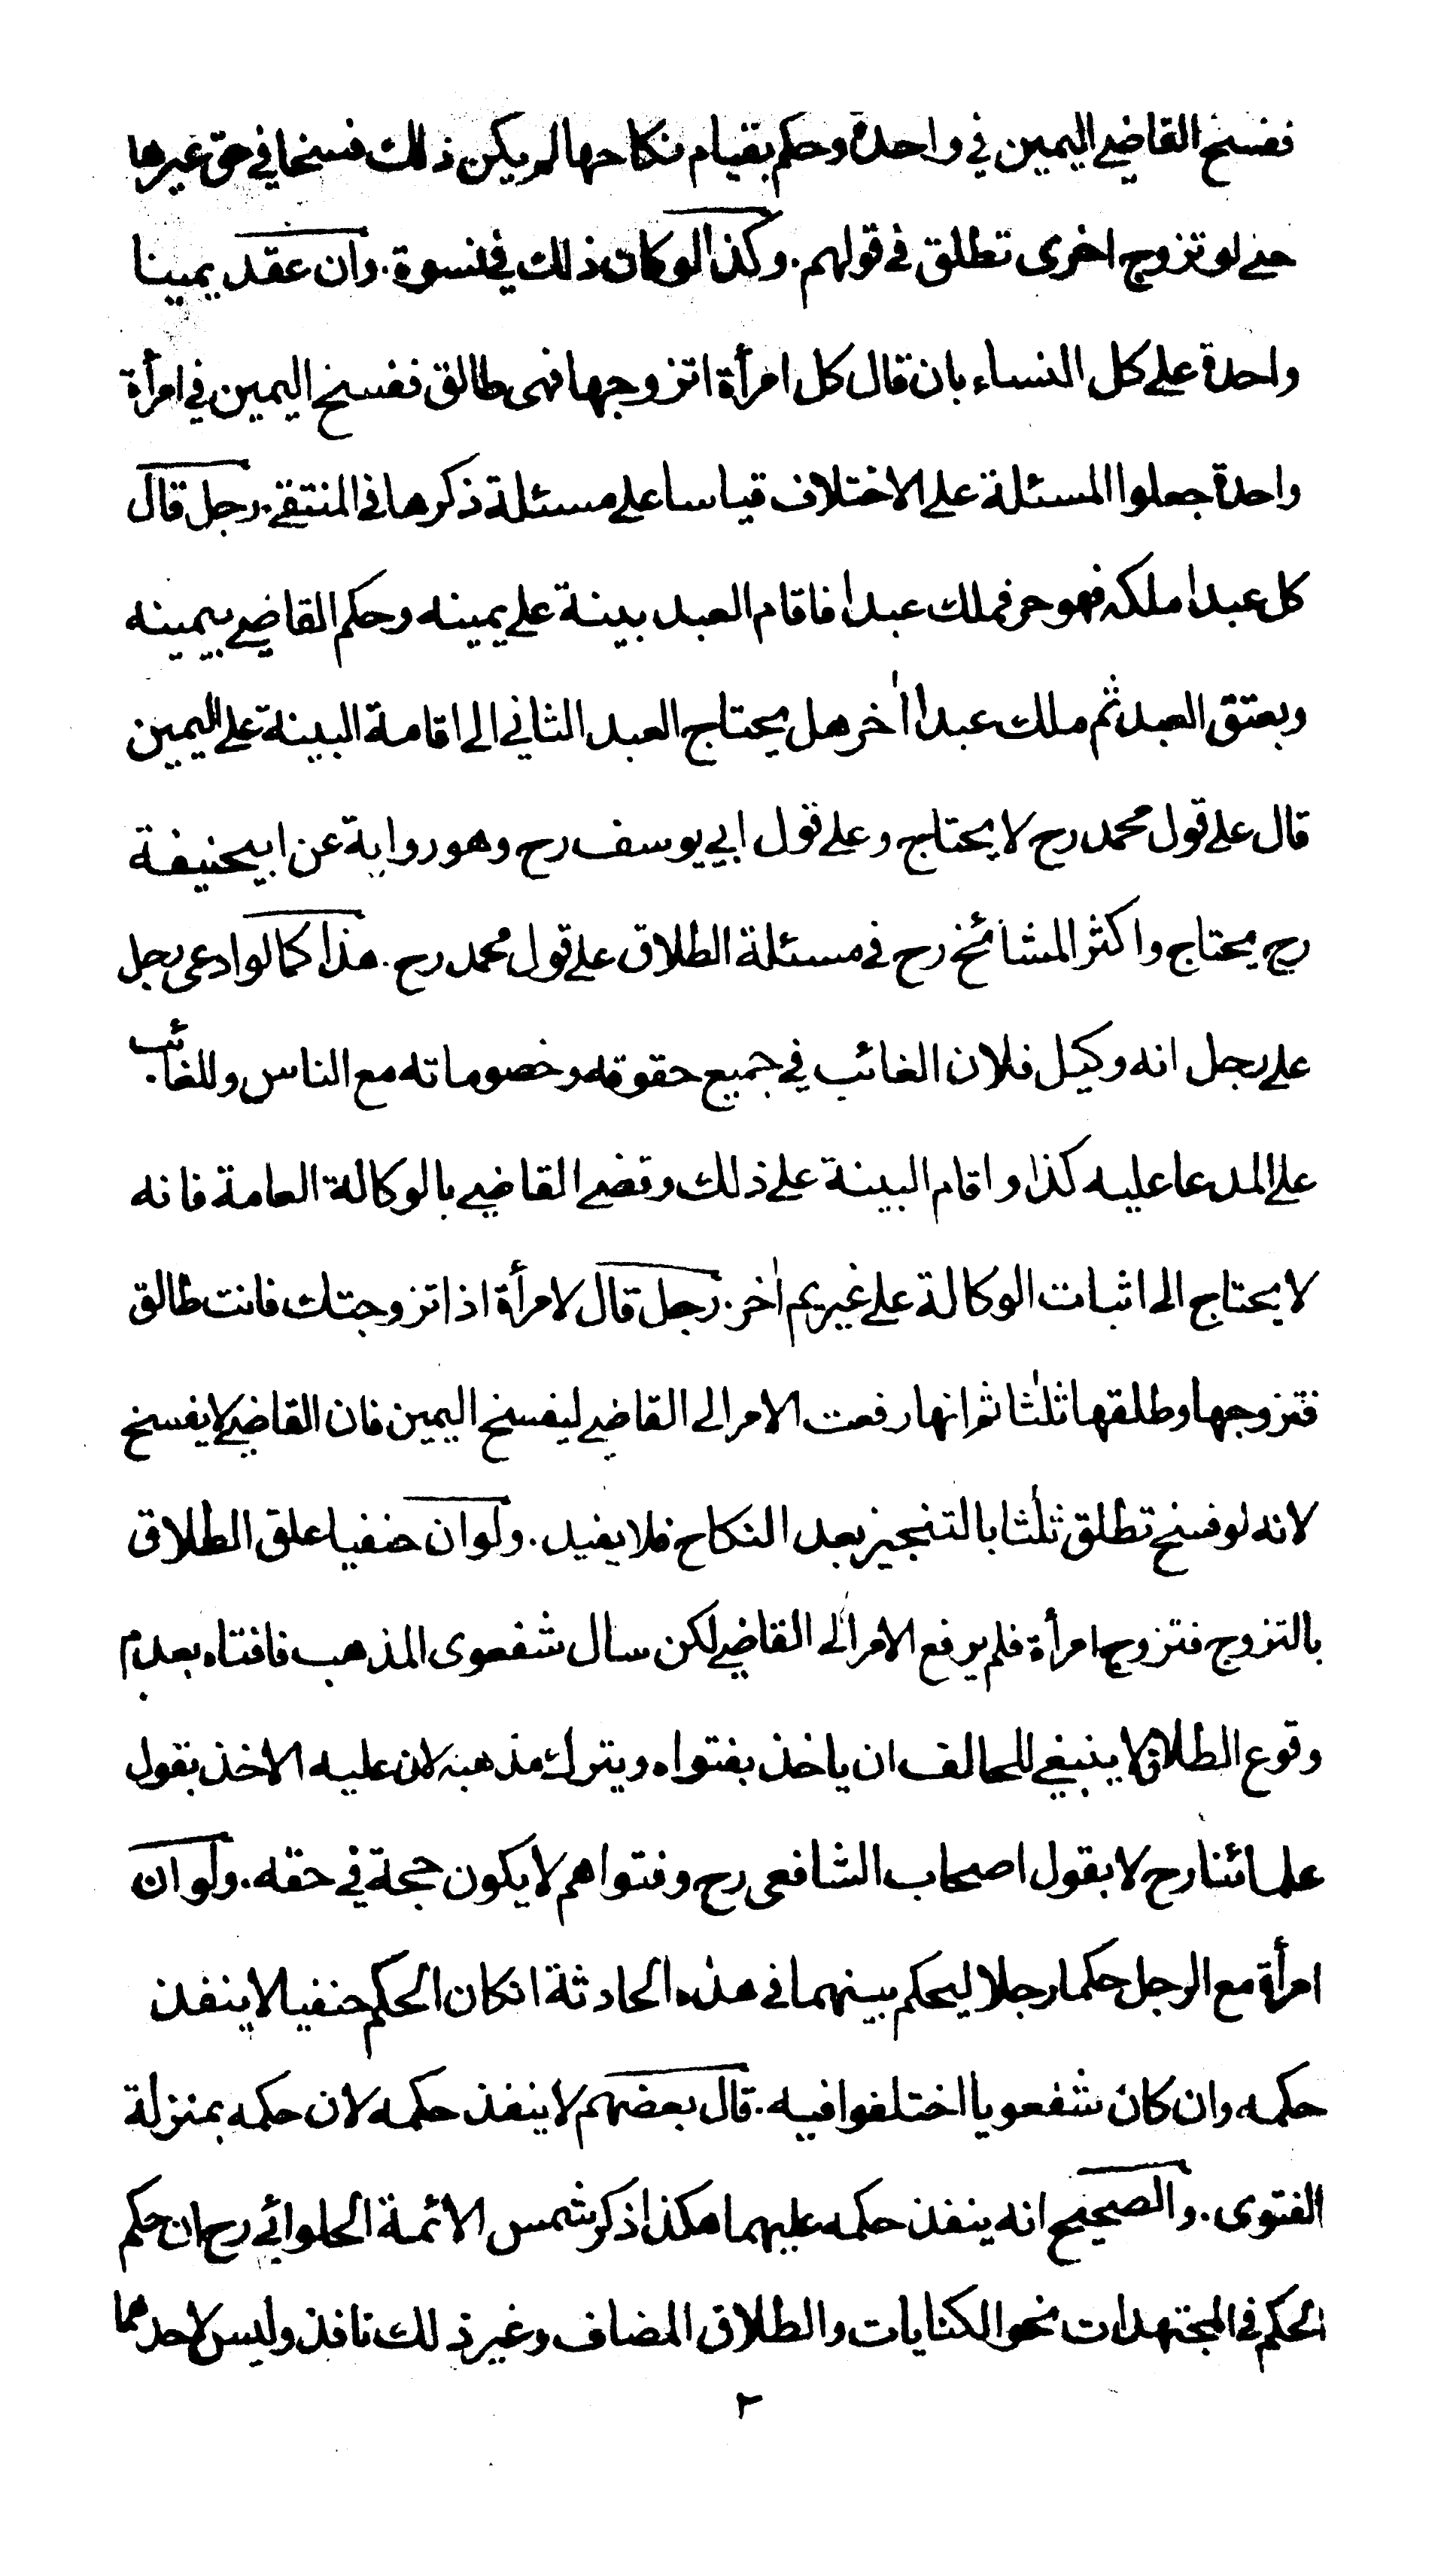 ففسخ القاضي اليمين في واحدة وحكم بقيام نكاحها لم يكن ذلك فسخا في حق غيرها
حتى لو تزوج اخرى تطلق في قولهم. وكذا لو كان ذلك في نسوة. وان عقد يمينا
واحدة على كل النساء بان قال كل امرأة اتزوجها فهى طالق ففسخ اليمين في امرأة
واحدة جعلوا المسئلة على الاختلاف قياسا على مسئلة ذكرها في المنتقى. رجل قال
كل عبد املكه فهو حر فملك عبدا فاقام العبد بينة على يمينه وحكم القاضي بيمينه
وبعتق العبد ثم ملك عبدا اٰخر هل يحتاج العبد الثاني الى اقامة البينة على اليمين
قال على قول محمد رح لا يحتاج وعلى قول ابي يوسف رح وهو رواية عن ابيحنيفة
رح يحتاج واكثر المشائخ رح في مسئلة الطلاق على قول محمد رح. هذا كما لو ادعى رجل
على رجل انه وكيل فلان الغائب في جميع حقوقه وخصوماته مع الناس وللغائب
على المدعا عليه كذا واقام البينة على ذلك وقضى القاضي بالوكالة العامة فانه
لا يحتاج الى اثبات الوكالة على غريم اٰخر. رجل قال لامرأة اذا تزوجتك فانت طالق
فتزوجها وطلقها ثلٰثا ثم انها رفعت الامر الى القاضي ليفسخ اليمين فان القاضي لا يفسخ
لانه لو فسخ تطلق ثلٰثا بالتنجيز بعد النكاح فلا يفيد. ولو ان حنفيا علق الطلاق
بالتزوج فتزوج امرأة فلم يرفع الامر الى القاضي لكن سال شفعوى المذهب فافتاه بعدم
وقوع الطلاق لا ينبغي للحالف ان ياخذ بفتواه ويترك مذهبه لان عليه الاخذ بقول
علمائنا رح لا بقول اصحاب الشافعى رح وفتواهم لا يكون حجة في حقه. ولو ان
امرأة مع الرجل حكما رجلا ليحكم بينهما في هذه الحادثة انكان الحكم حنفيا لا ينفذ
حكمه وان كان شفعويا اختلفوا فيه. قال بعضهم لا ينفذ حكمه لان حكمه بمنزلة
الفتوى. والصحيح انه ينفذ حكمه عليهما هكذا ذكر شمس الائمة الحلوائي رح ان حكم
الحكم في المجتهدات نحو الكنايات والطلاق المضاف وغير ذلك نافذ وليس لاحدهما
٢